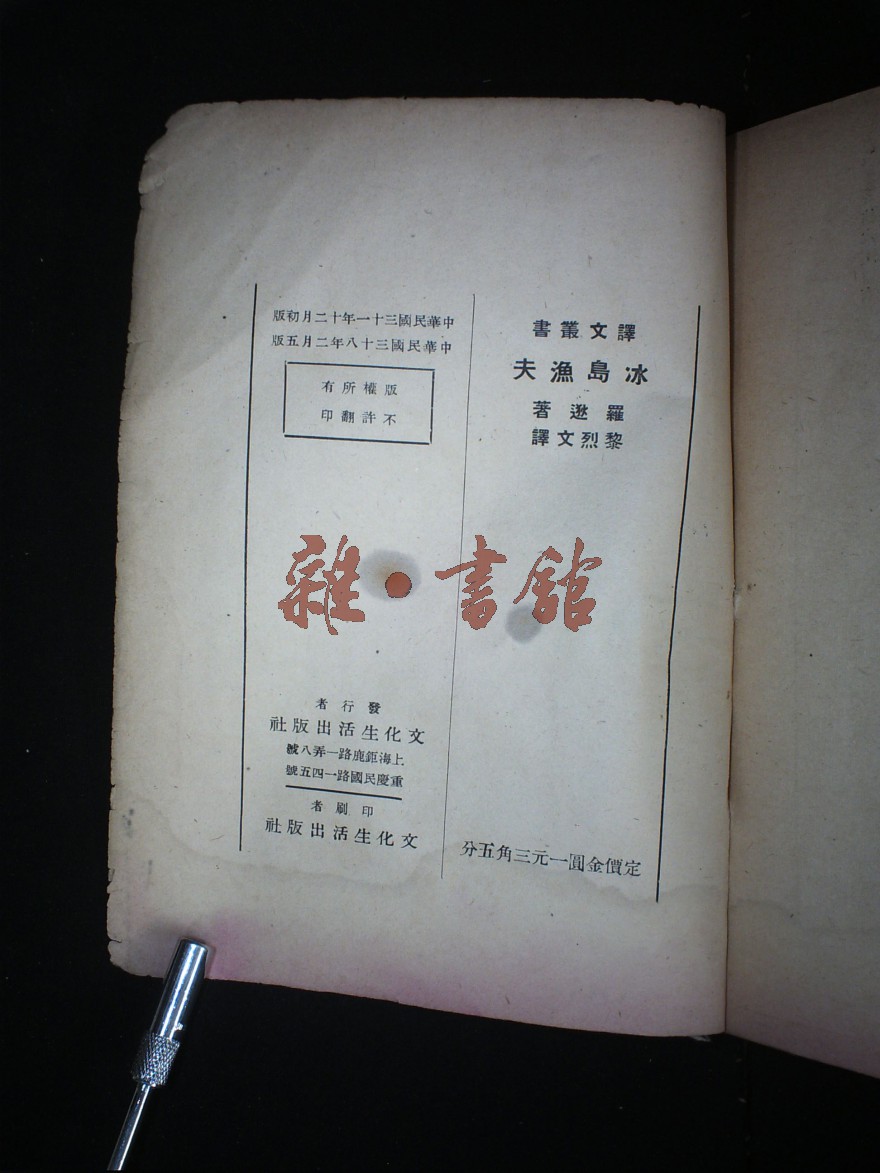 譯文叢書
冰島漁夫
羅逖著
黎烈文譯
定價金圓一元三角五分
中華民國三十一年十二月初版
中華民國三十八年二月五版
版權所有
不許翻印
發行者
文化生活出版社
上海鉅鹿路一弄八號
重慶民國路一四五號
印刷者
文化生活出版社
雜·書館